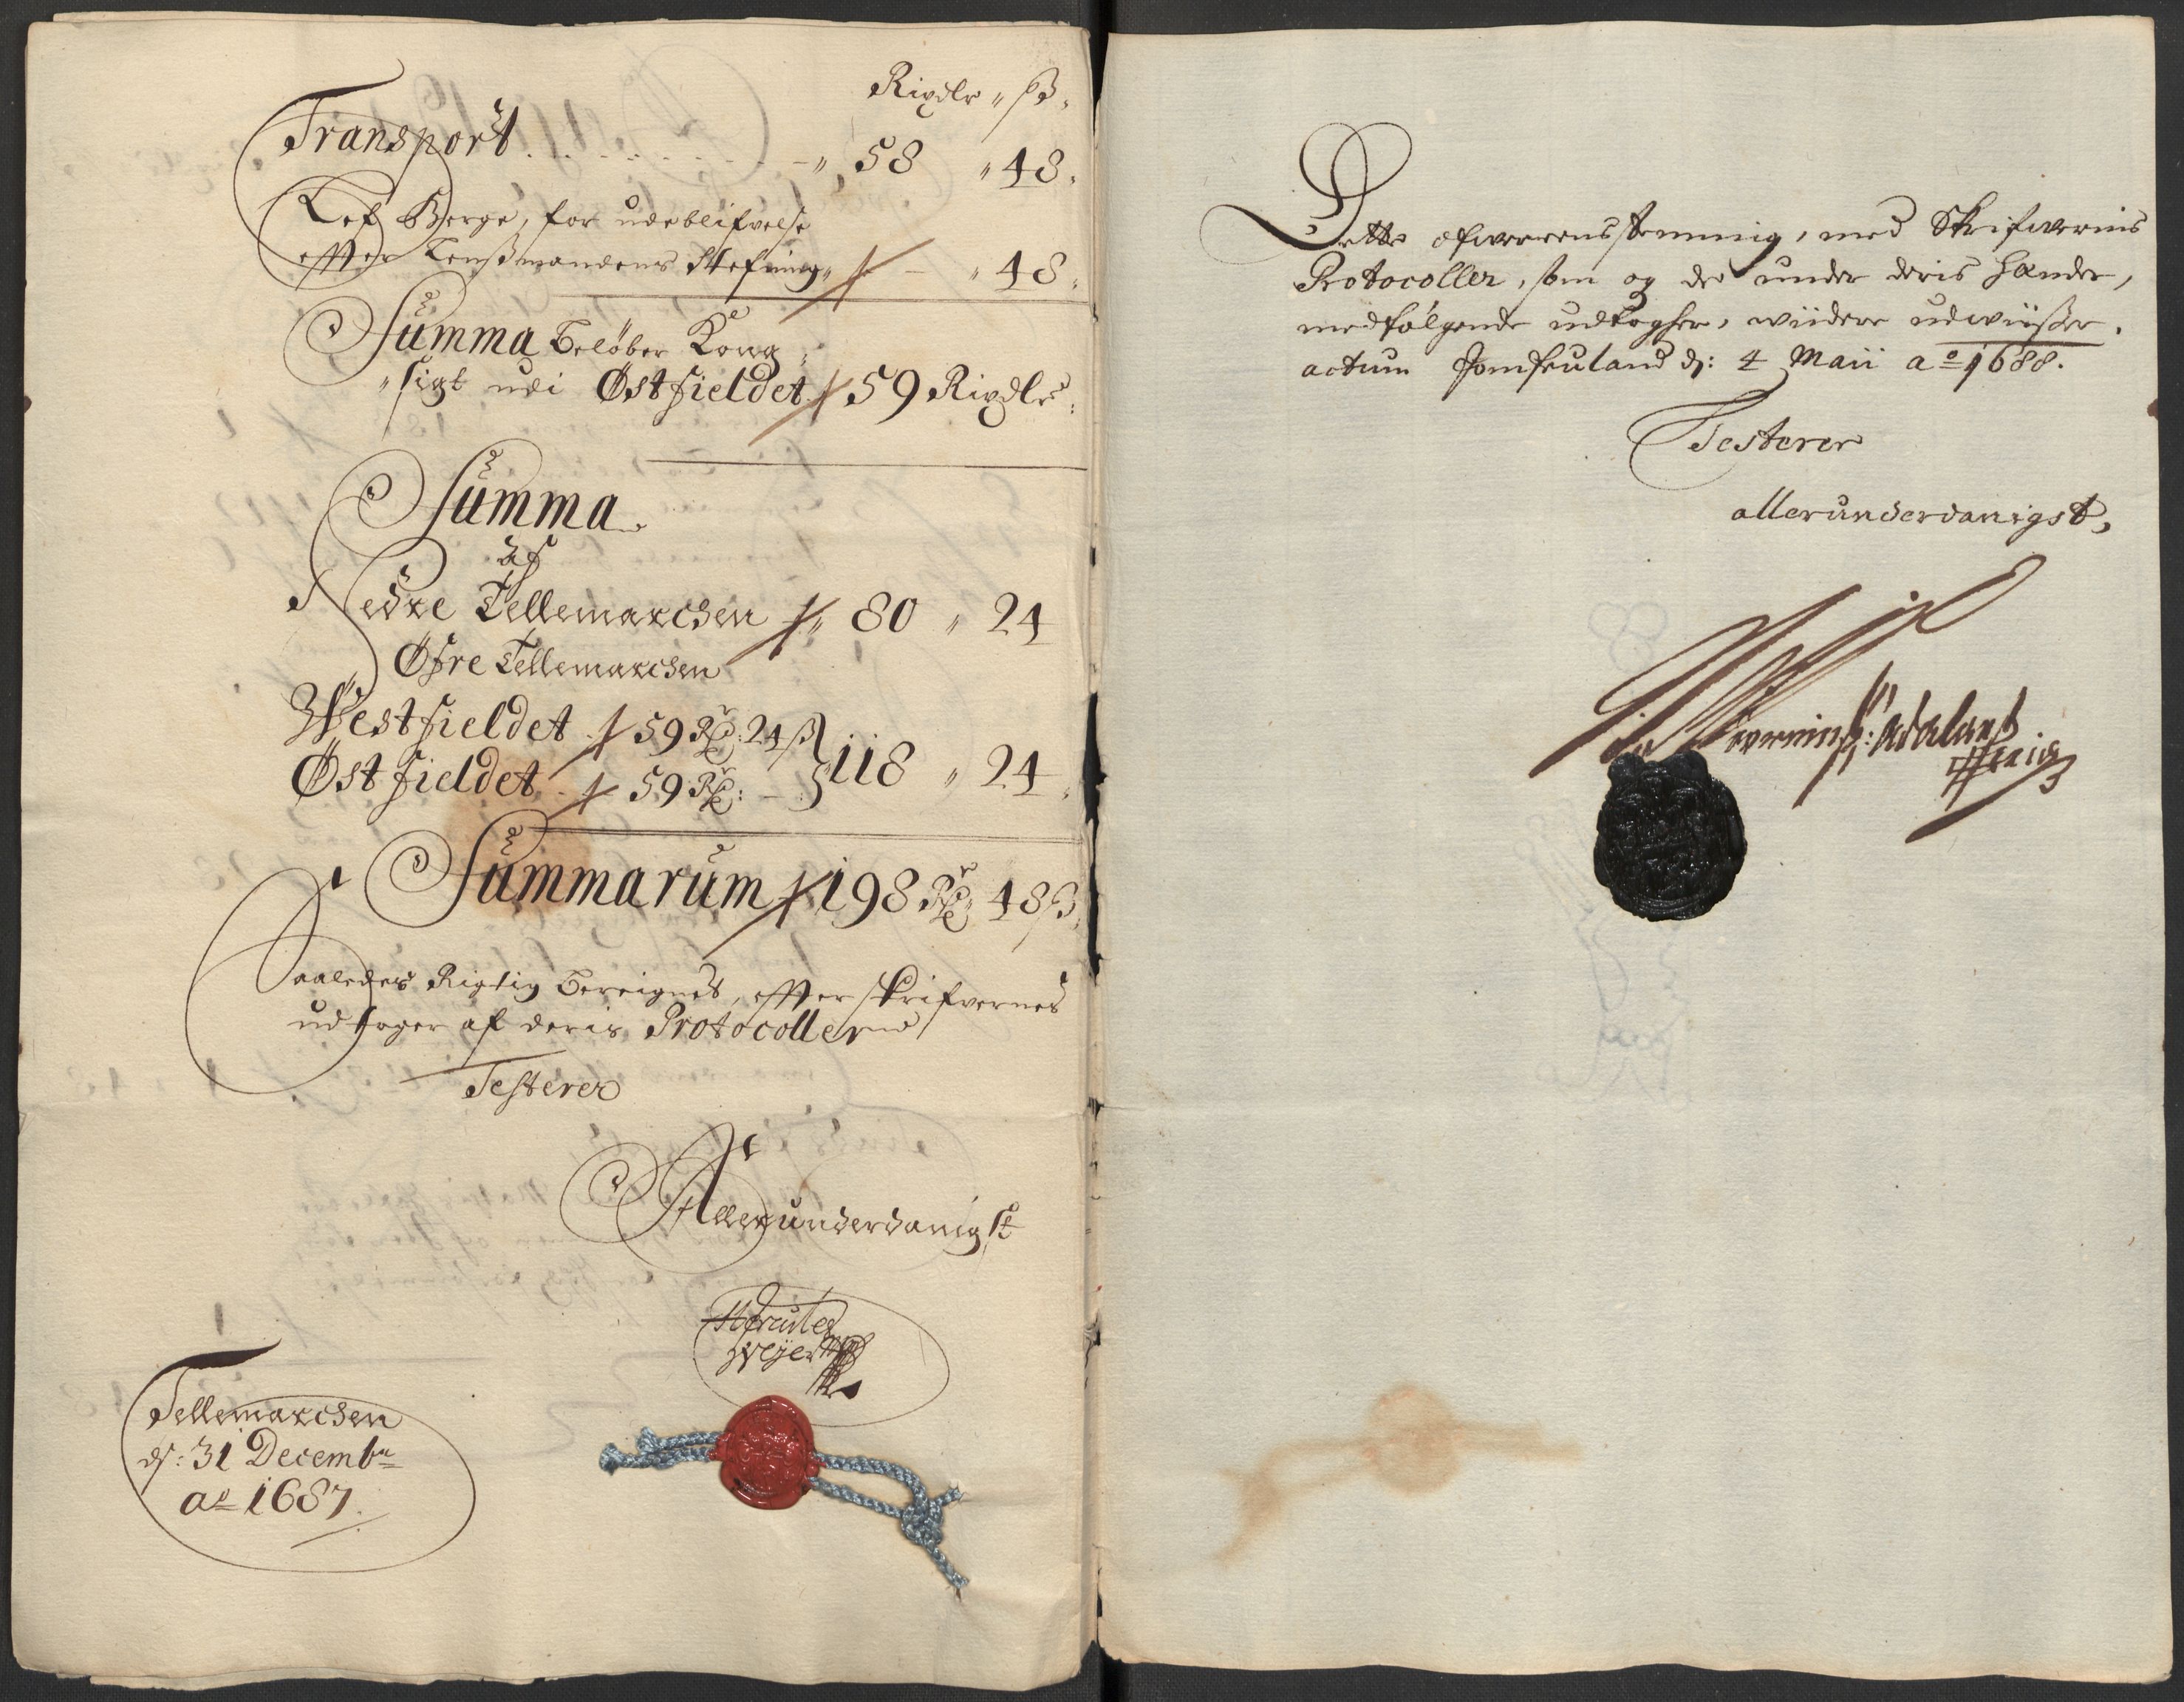 Rixdlr „ ß„
Transport . . . . . . . . „ 58 „ 48„
Lef Berge, for udeblifvelse
effter Lenßmandens Stefning „ – „ 48„
Summa Beløber Kong
„sigt udi Østfieldet 59 Rixdlr
Summa
Af
Nedre Tellemarchen „ 80 „ 24
Øfre Tellemarchen
Westfieldet 59 Rdr: 24 ß
Østfieldet 59 Rdr: – } 118 „ 24
Summarum 198 Rdr 48 ß„
Saaledes Rigtig Bereignet, effter skrifvernes
udtoger af deris Protocoller
Testerer
Allerunderdanigst
Hercules
Weyer
Tellemarchen
dj: 31 Decembr
ao 1687.
Dette ofwerensstemmig, med Skrifwernis
Protocoller, som og de under deris Hænder,
medfølgende udtogher, wiidere udwiißer.
actum Jomfruland dj: 4 Maii ao 1688.
Testerer
allerunderdanigst,
Adeland